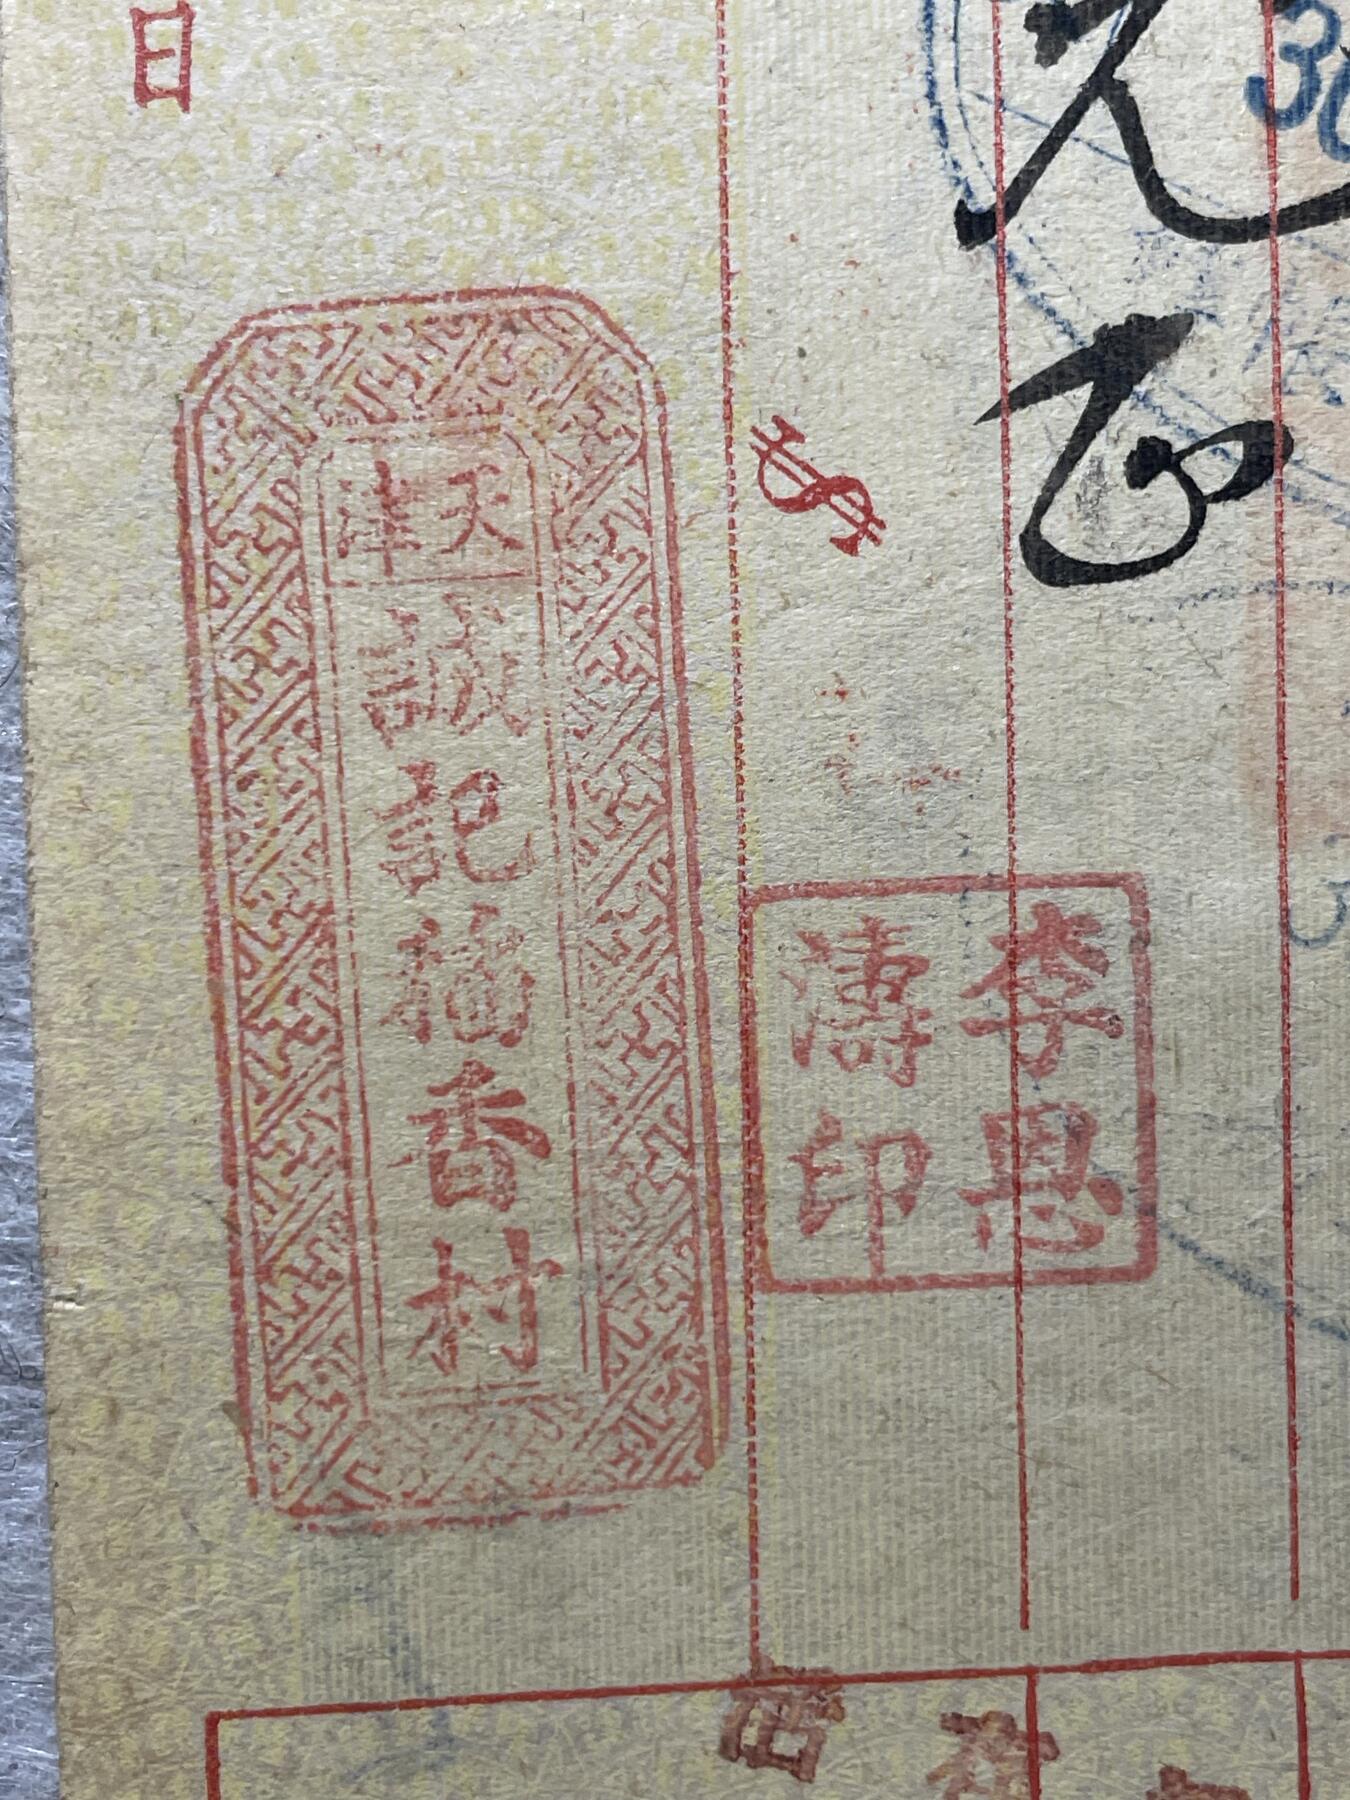 日
元
正
30
$
天津
誠記稻香村
李恩
濤印